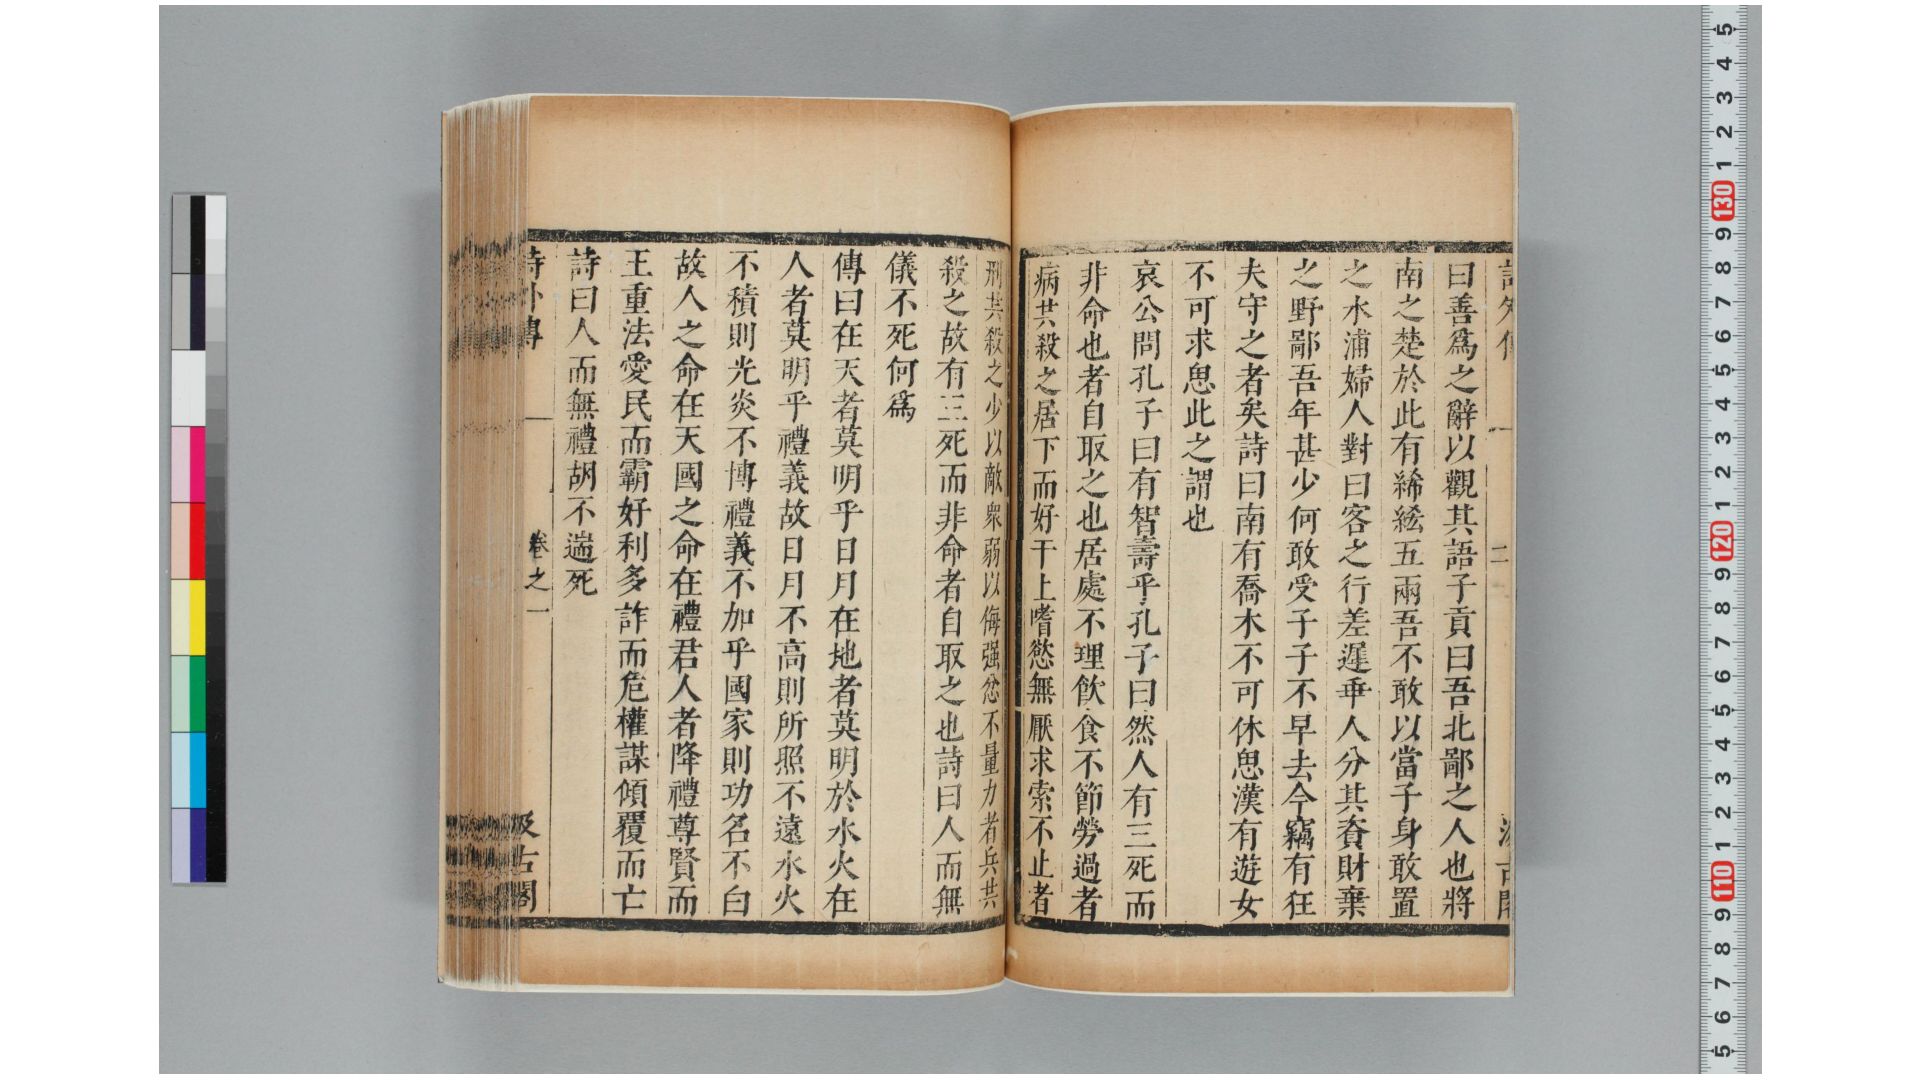 曰善爲之辭以觀其語子貢曰吾北鄙之人也將
南之楚於此有絺綌五兩吾不敢以當子身敢置
之水浦婦人對曰客之行差遲乖人分其資財棄
之野鄙吾年甚少何敢受子子不早去今竊有狂
夫守之者矣詩曰南有喬木不可休思漢有遊女
不可求思此之謂也
哀公問孔子曰有智壽乎孔子曰然人有三死而
非命也者自取之也居處不理飲食不節勞過者
病共殺之居下而好干上嗜慾無厭求索不止者
刑共殺之少以敵衆弱以侮强忿不量力者兵共
殺之故有三死而非命者自取之也詩曰人而無
儀不死何爲
傳曰在天者莫明乎日月在地者莫明於水火在
人者莫明乎禮義故日月不高則所照不遠水火
不積則光炎不博禮義不加乎國家則功名不白
故人之命在天國之命在禮君人者降禮尊賢而
王重法愛民而霸好利多詐而危權謀傾覆而亡
詩曰人而無禮胡不遄死
詩外傳 卷之一 汲古閣
5 4 3 2 1 130 9 8 7 6 5 4 3 2 1 120 9 8 7 6 5 4 3 2 1 110 9 8 7 6 5